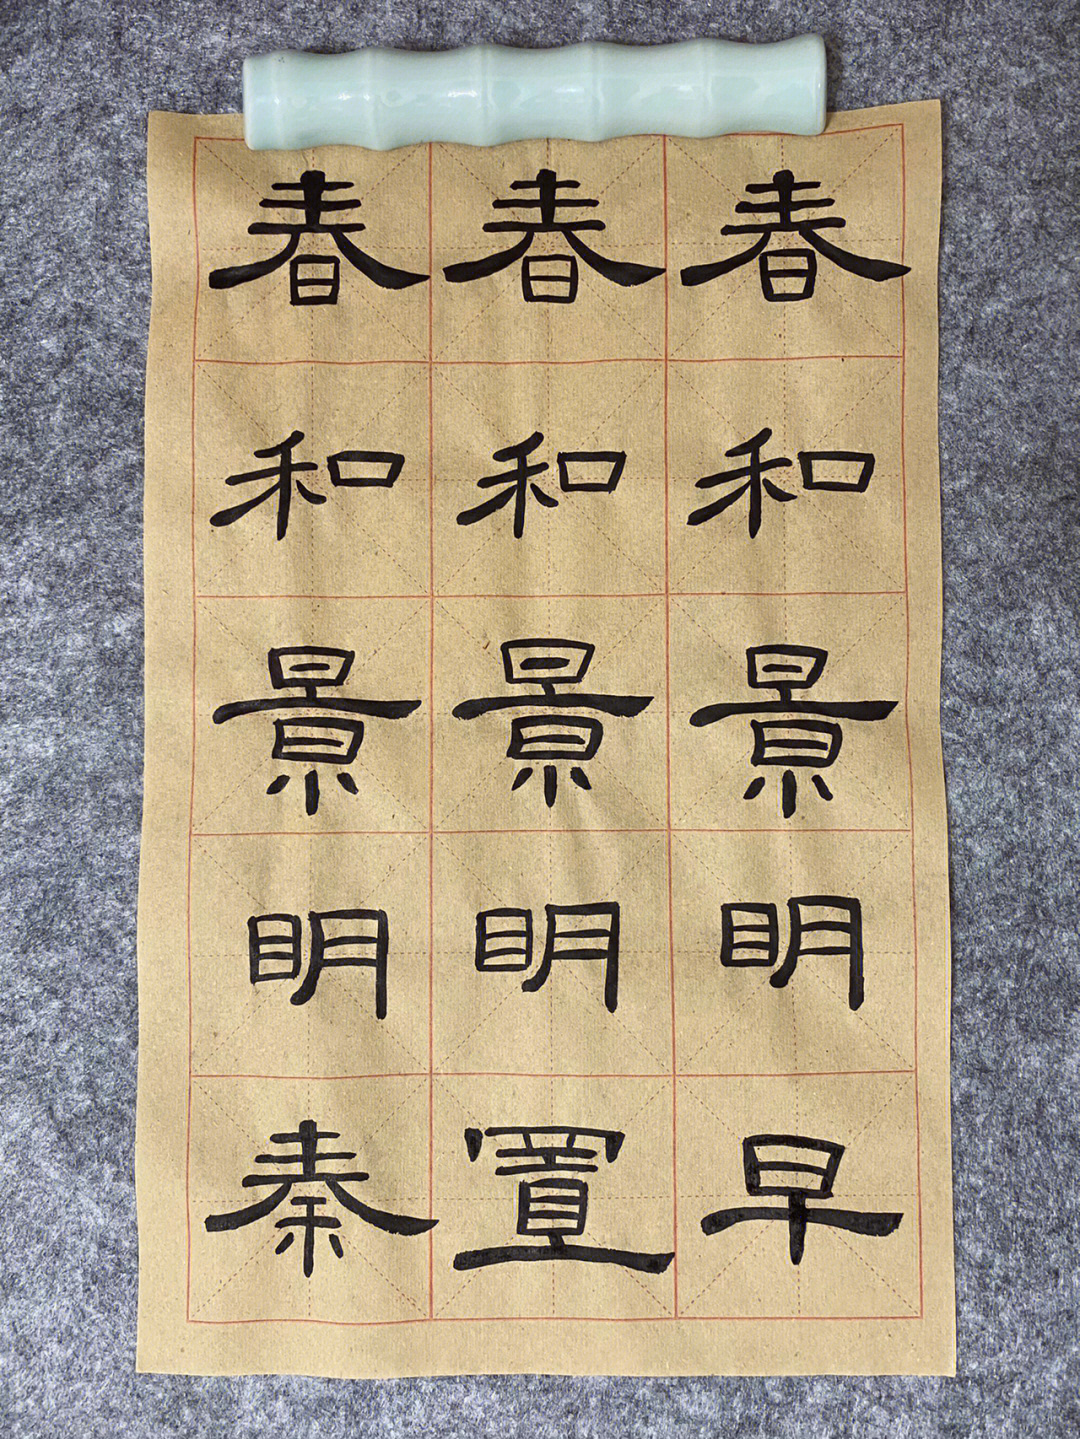 春和景明早
春和景明置
春和景明秦